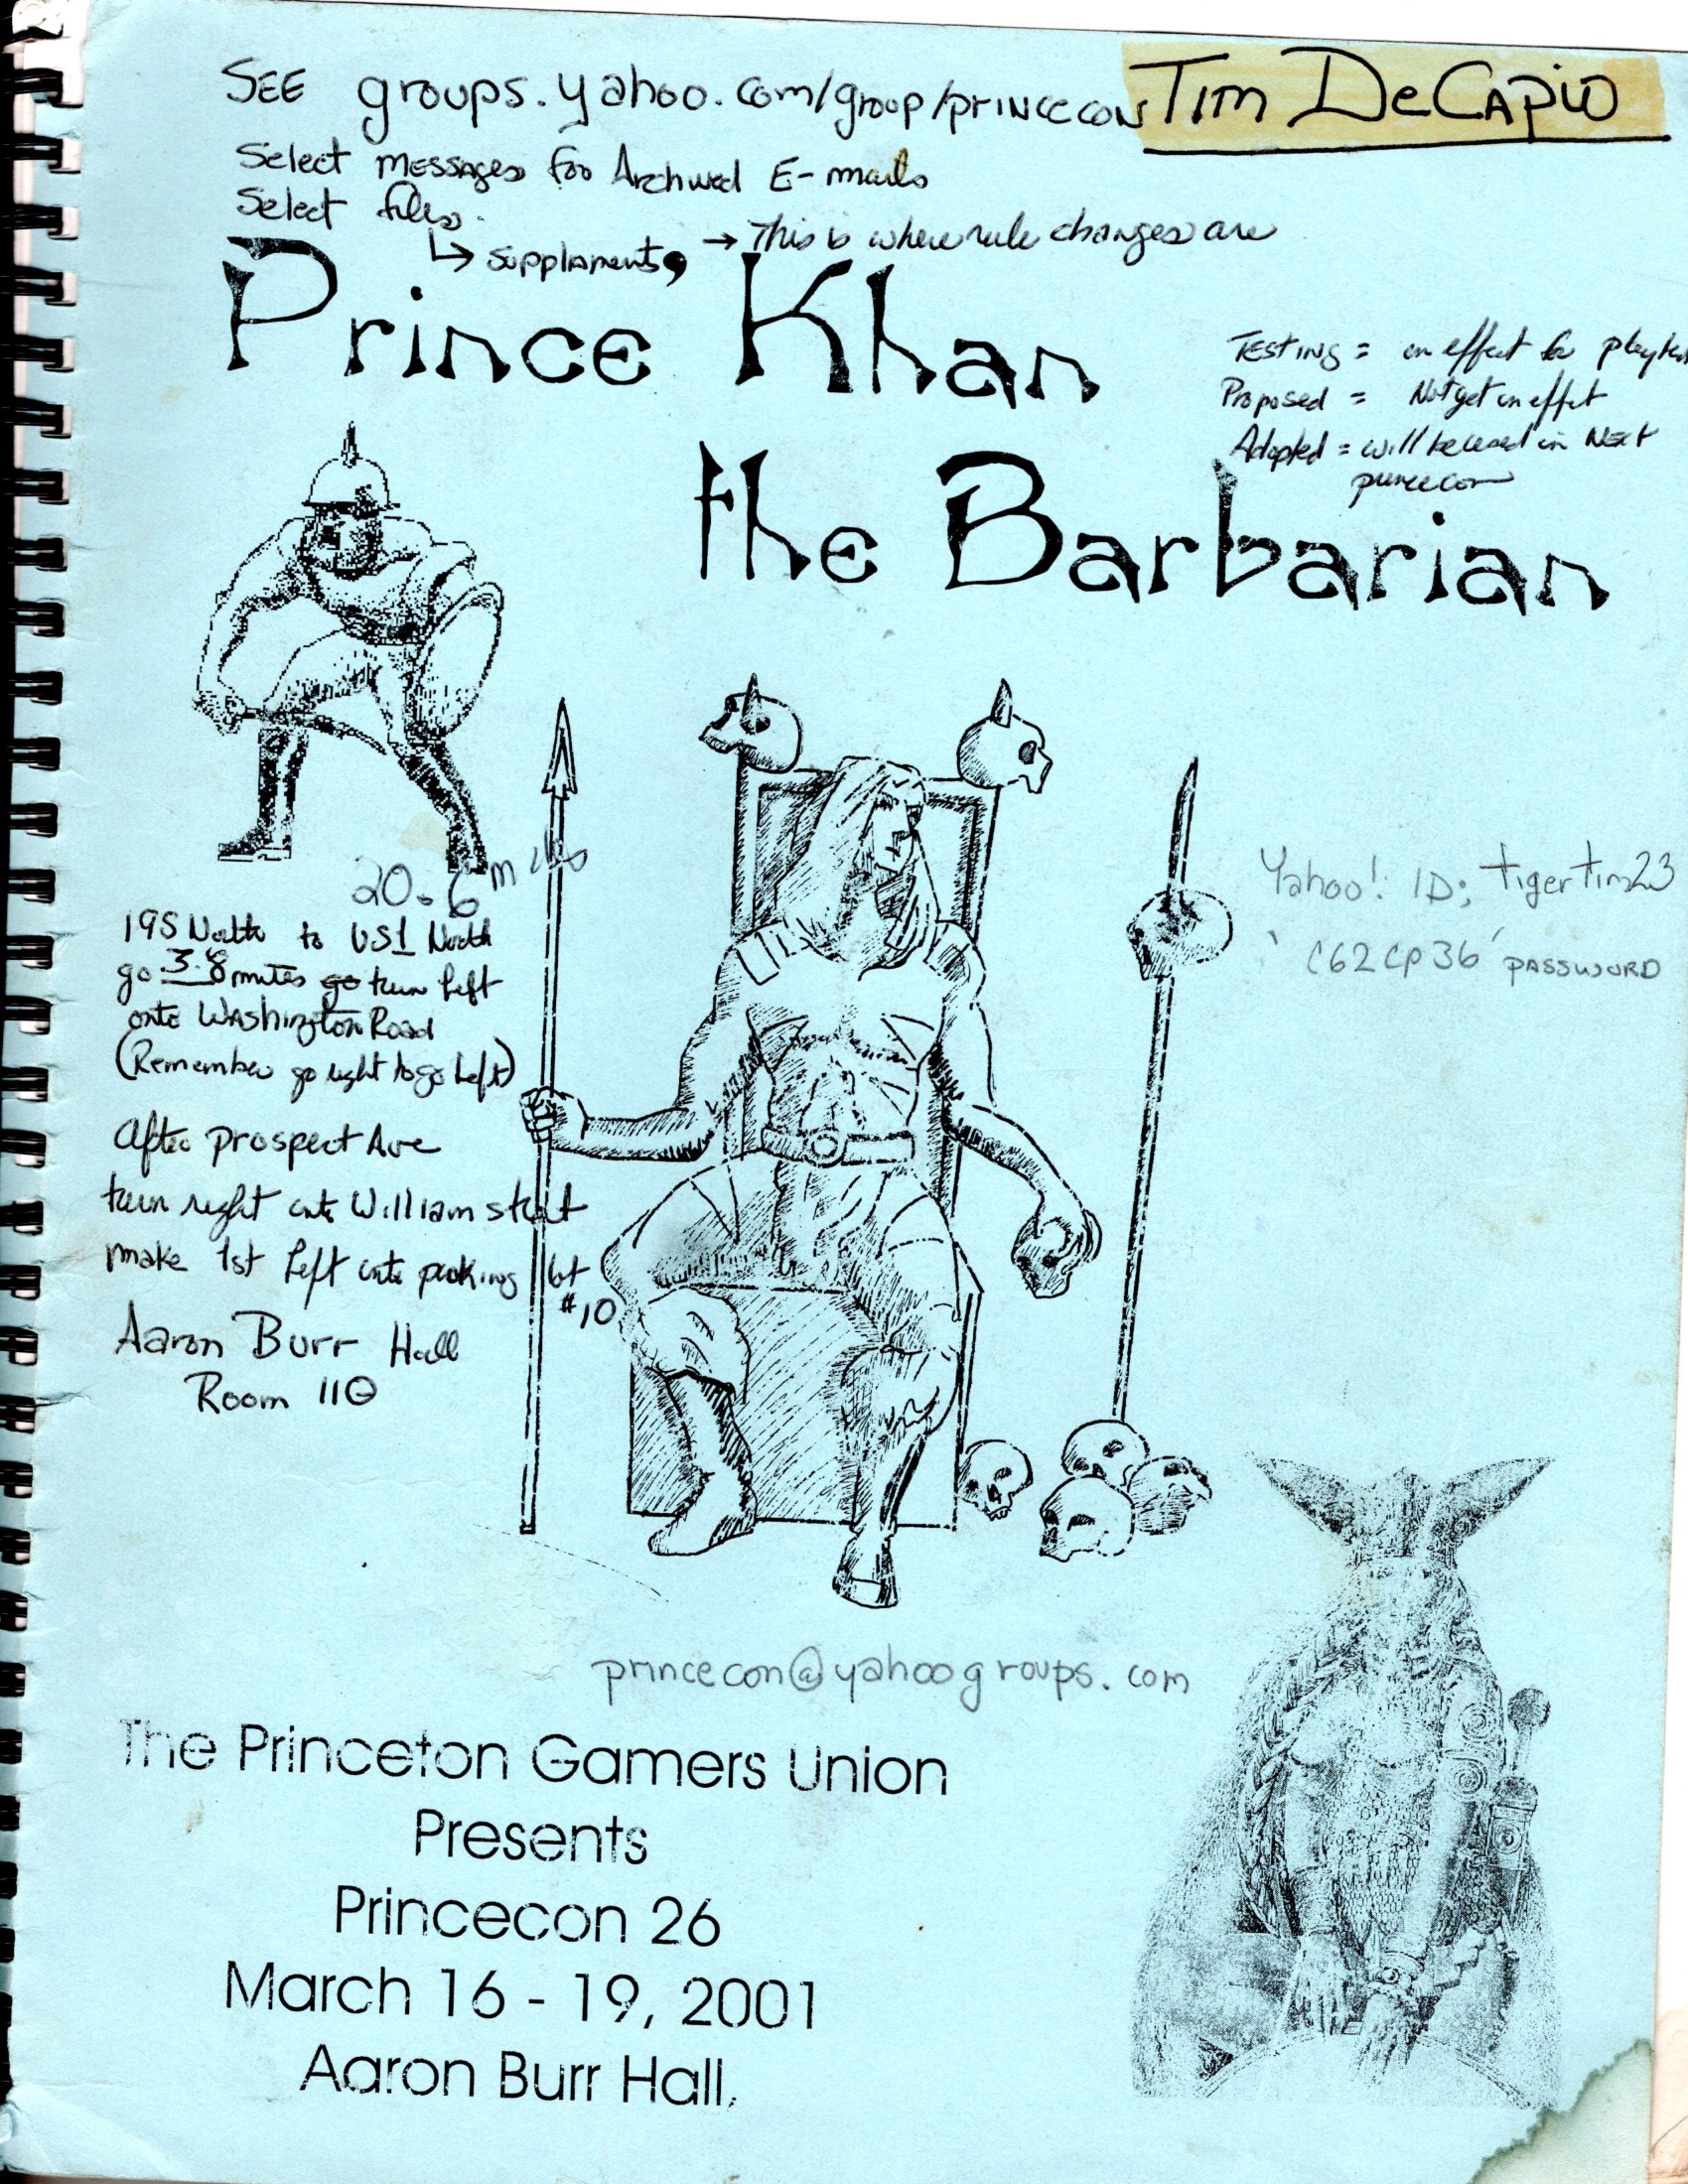 SEE groups.yahoo.com/group/princecon
Tim DeCapio
Select messages for Archived E-mails
Select files.
↳ Supplaments, → This is where rule changes are
Prince Khan
the Barbarian
Testing = in effect for playtest
Proposed = Not yet in effect
Adopted = will be used in Next
princecon
20.6 miles
195 North to US1 North
go 3.8 minutes go turn left
onto Washington Road
(Remember go right to go left)
After prospect Ave
turn right onto William street
make 1st left into parking lot
#10
Aaron Burr Hall
Room 110
Yahoo! ID; tigertim23
'C62CP36' PASSWORD
princecon@yahoogroups.com
The Princeton Gamers Union
Presents
Princecon 26
March 16 - 19, 2001
Aaron Burr Hall.